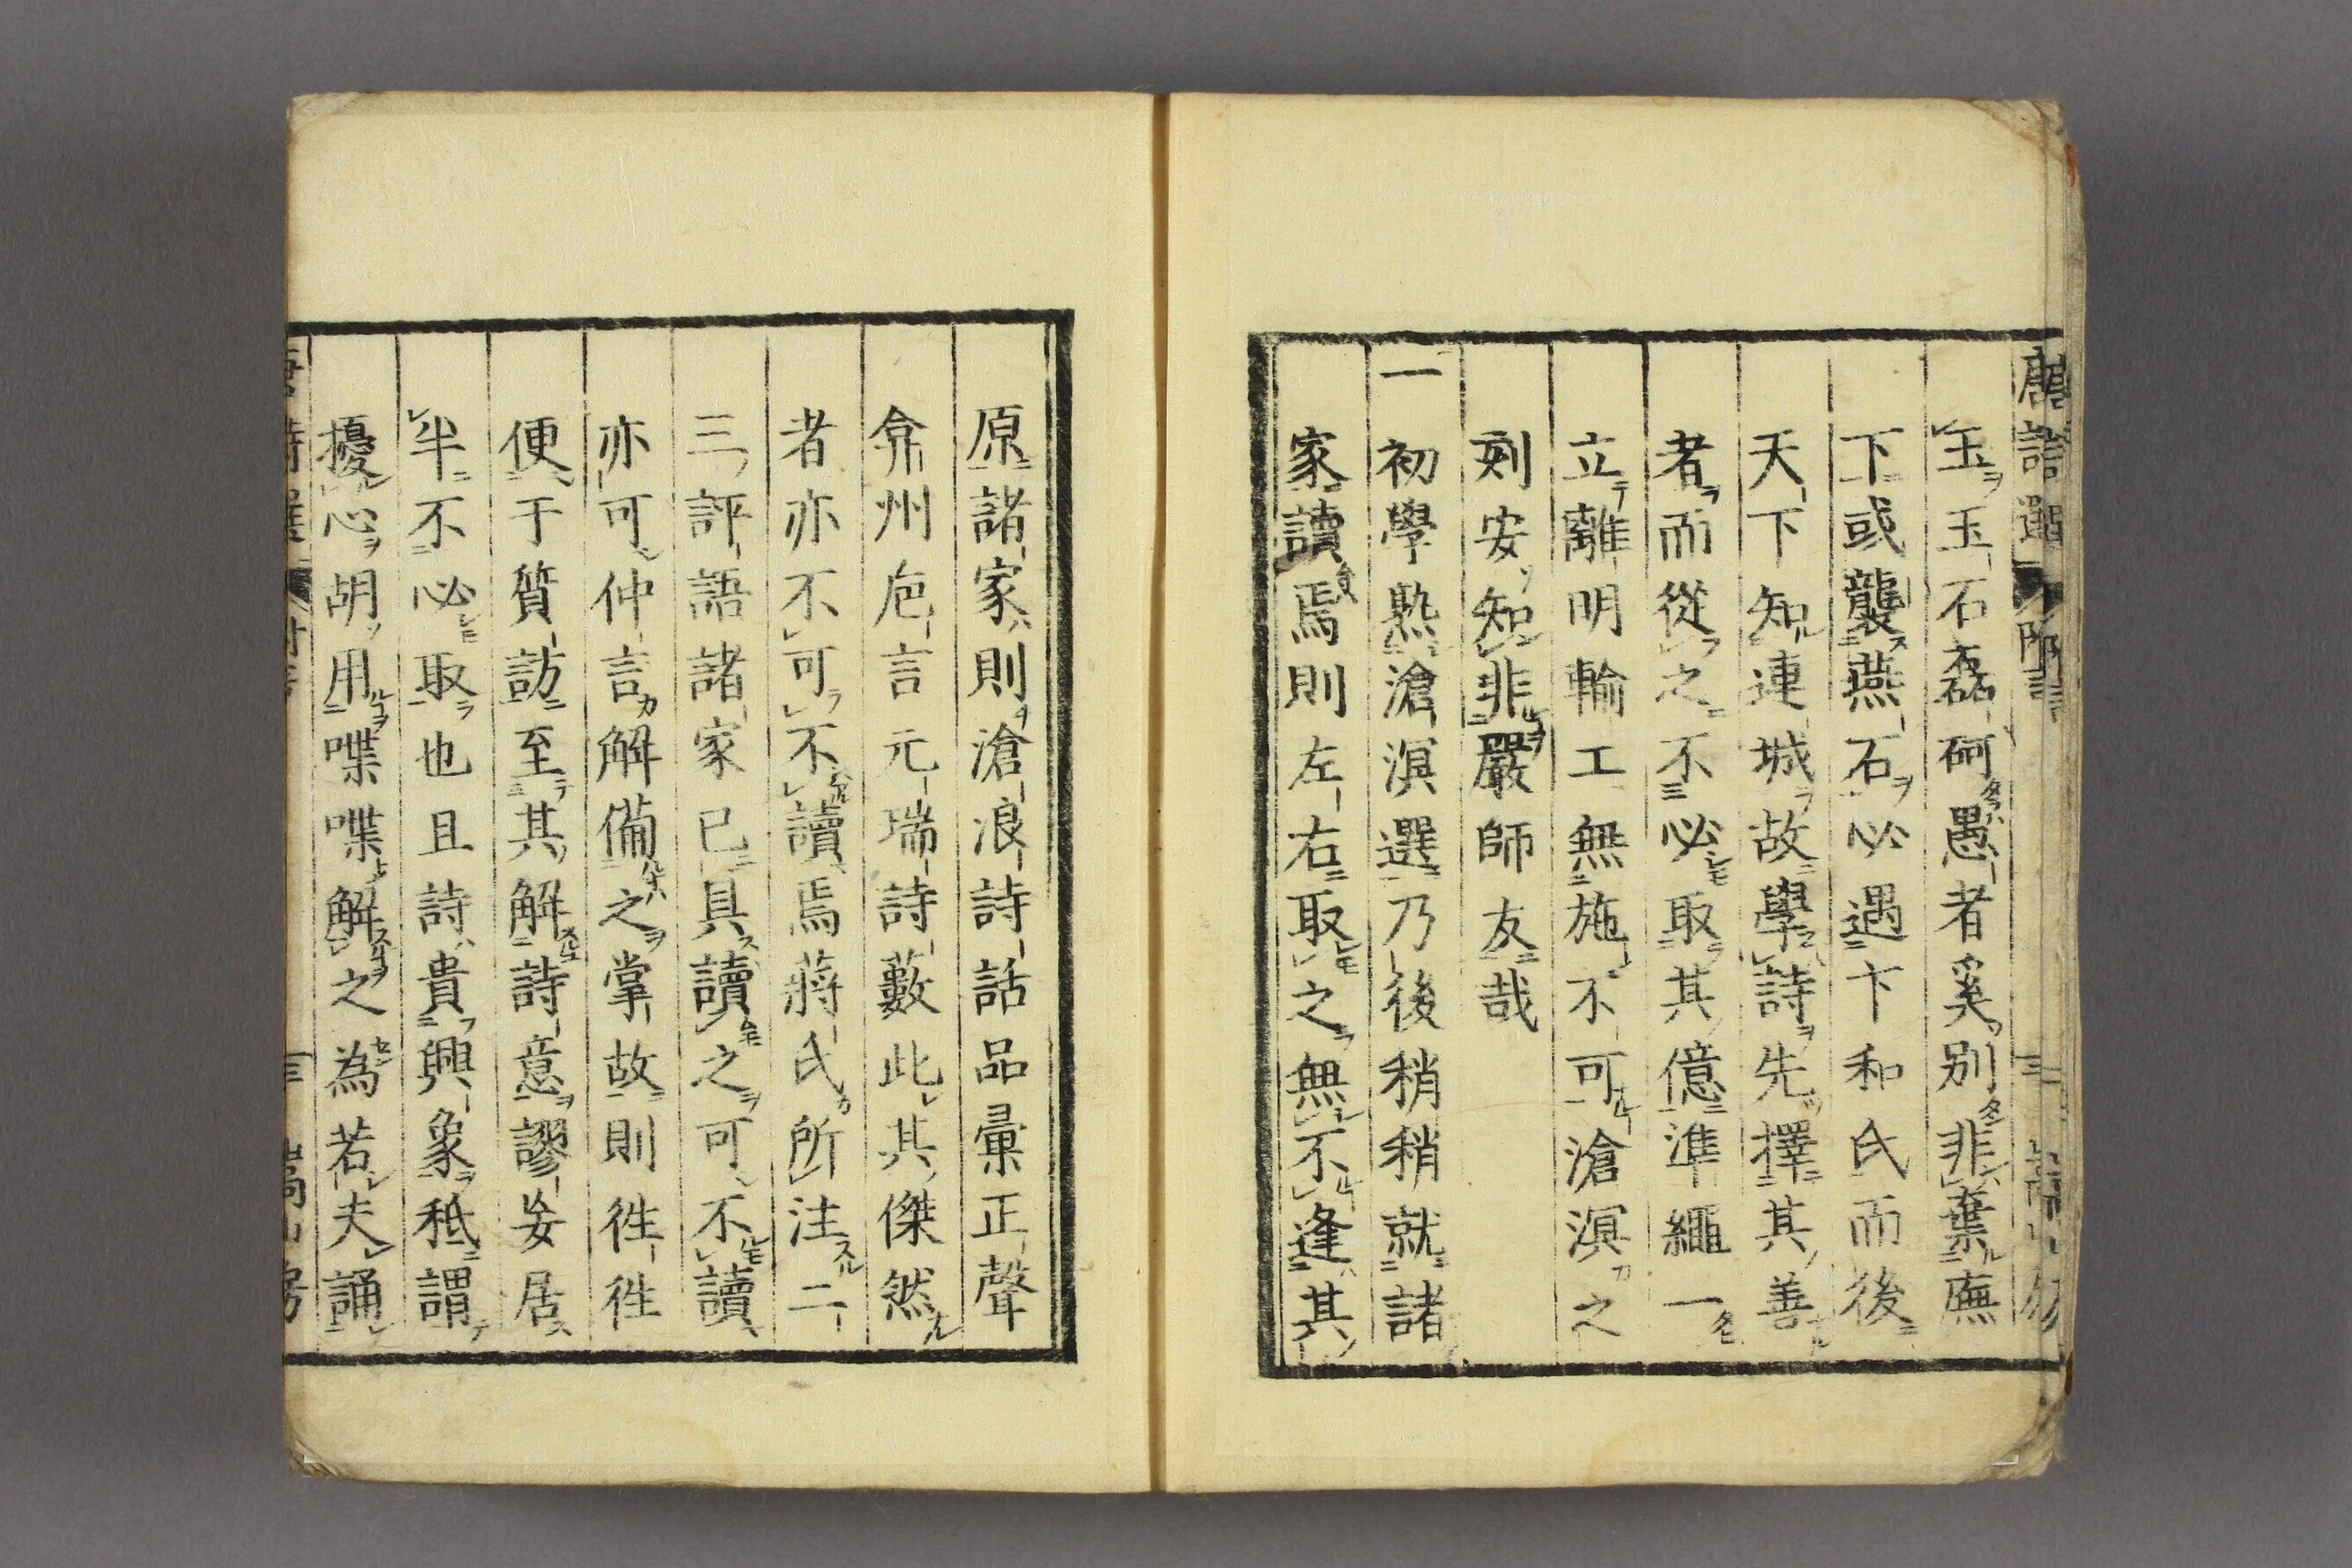 唐詩選 附言
玉玉石磊砢愚者奚別非棄廡
下或襲燕石必遇卞和氏而後
天下知連城故學詩先擇其善
者而從之不必取其億準繩一
立離明輸工無施不可滄溟之
刻安知非嚴師友哉
一初學熟滄溟選乃後稍稍就諸
家讀焉則左右取之無不逢其
原諸家則滄浪詩話品彙正聲
弇州巵言元瑞詩藪此其傑然
者亦不可不讀焉蔣氏所注二
三評語諸家已具讀之可不讀
亦可仲言解備之掌故則徃徃
便于質訪至其解詩意謬妄居
半不必取也且詩貴興象秪謂
擾心胡用喋喋解之為若夫誦